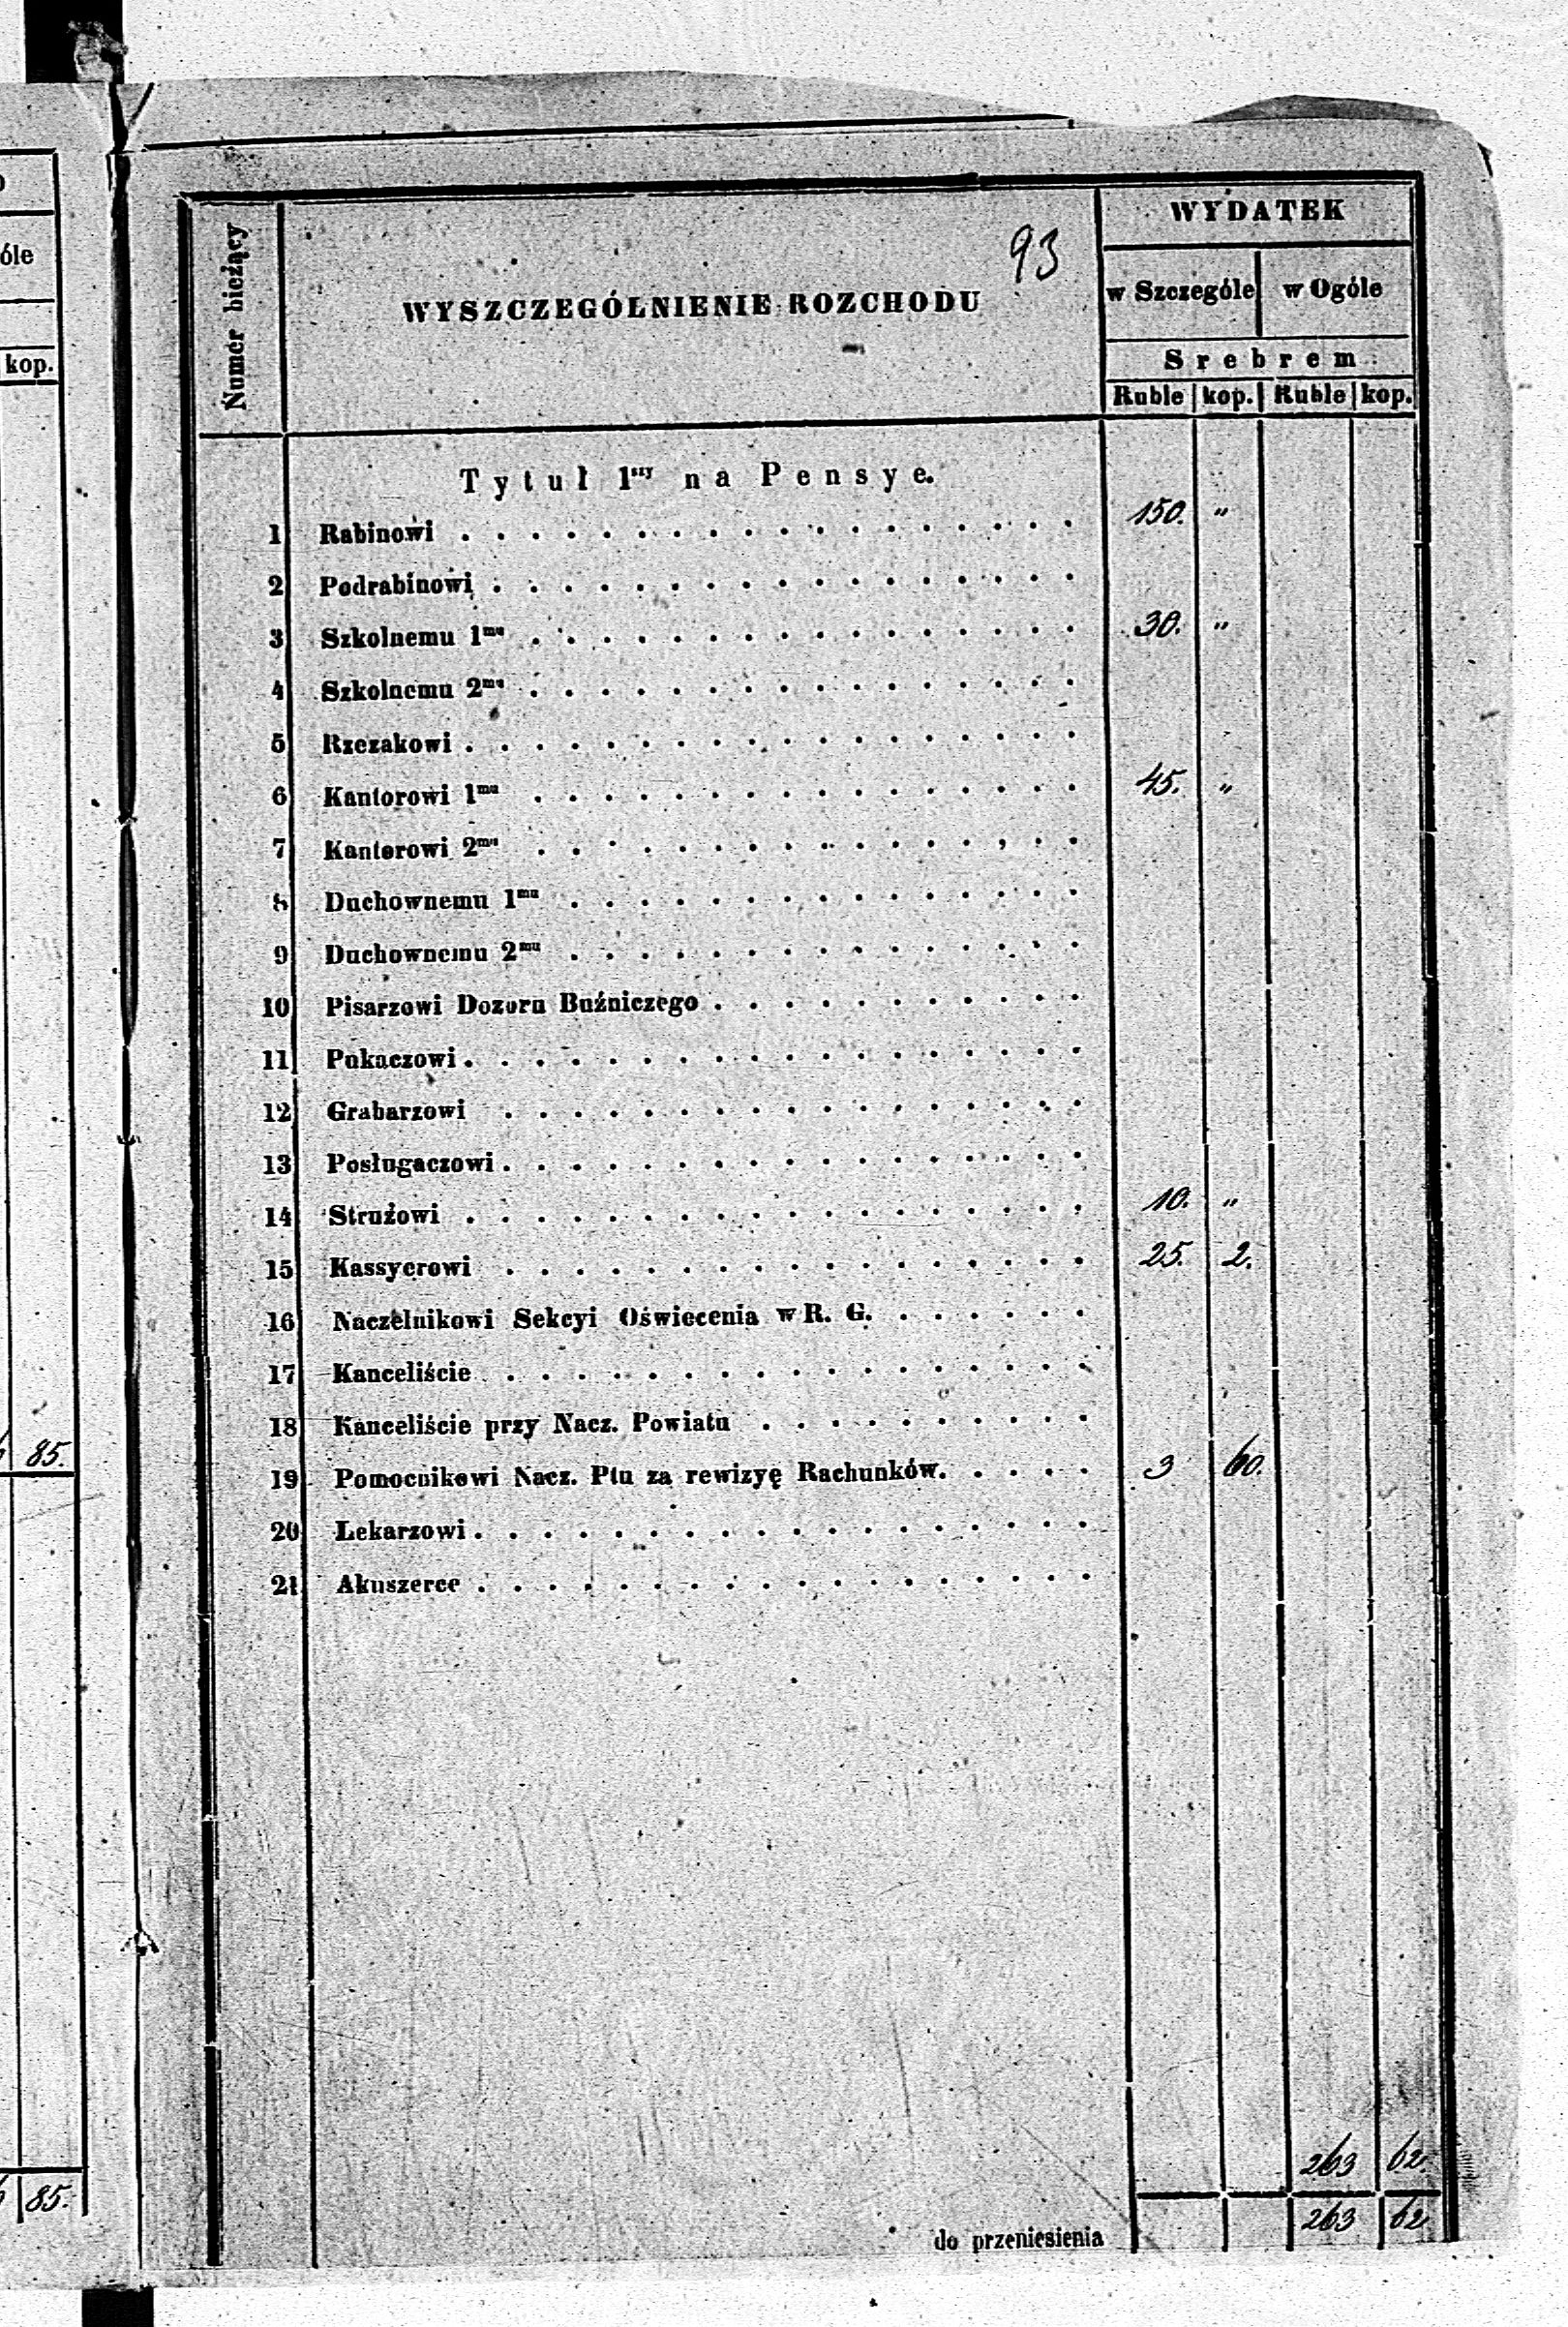 óle
kop.
85.
85.
93
Numer bieżący
WYSZCZEGÓLNIENIE ROZCHODU
WYDATEK
w Szczególe w Ogóle
Srebrem
Ruble kop. Ruble kop.
Tytuł 1szy na Pensye.
1 Rabinowi . . . . . 150. „
2 Podrabinowi . . . . .
3 Szkolnemu 1mu . . . . . 30. „
4 Szkolnemu 2mu . . . . .
5 Rzezakowi . . . . .
6 Kantorowi 1mu . . . . . 45. „
7 Kantorowi 2mu . . . . .
8 Duchownemu 1mu . . . . .
9 Duchownemu 2mu . . . . .
10 Pisarzowi Dozoru Buźniczego . . . . .
11 Pukaczowi . . . . .
12 Grabarzowi . . . . .
13 Posługaczowi . . . . .
14 Strużowi . . . . . 10. „
15 Kassyerowi . . . . . 25. 2.
16 Naczelnikowi Sekcyi Oświecenia w R. G. . . . . .
17 Kanceliście . . . . .
18 Kanceliście przy Nacz. Powiatu . . . . .
19 Pomocnikowi Nacz. Ptu za rewizyę Rachunków. . . . . 3 60.
20 Lekarzowi . . . . .
21 Akuszerce . . . . .
263 62.
do przeniesienia 263 62